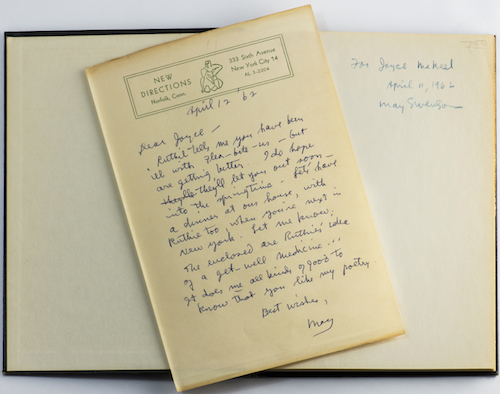 NEW
DIRECTIONS
Norfolk, Conn.
333 Sixth Avenue
New York City 14
AL 5-2304
April 12 '62
Dear Joyce –
Ruthie tells me you have been
ill with Flea-bite-us – but
are getting better. I do hope
they'll let you out soon –
into the springtime. Let's have
a dinner at our house, with
Ruthie too, when you're next in
New York. Let me know.
The enclosed are Ruthie's idea
of a get-well medicine...
It does me all kinds of good to
know that you like my poetry.
Best wishes,
May
For Joyce
April 11, 1962
May Swenson